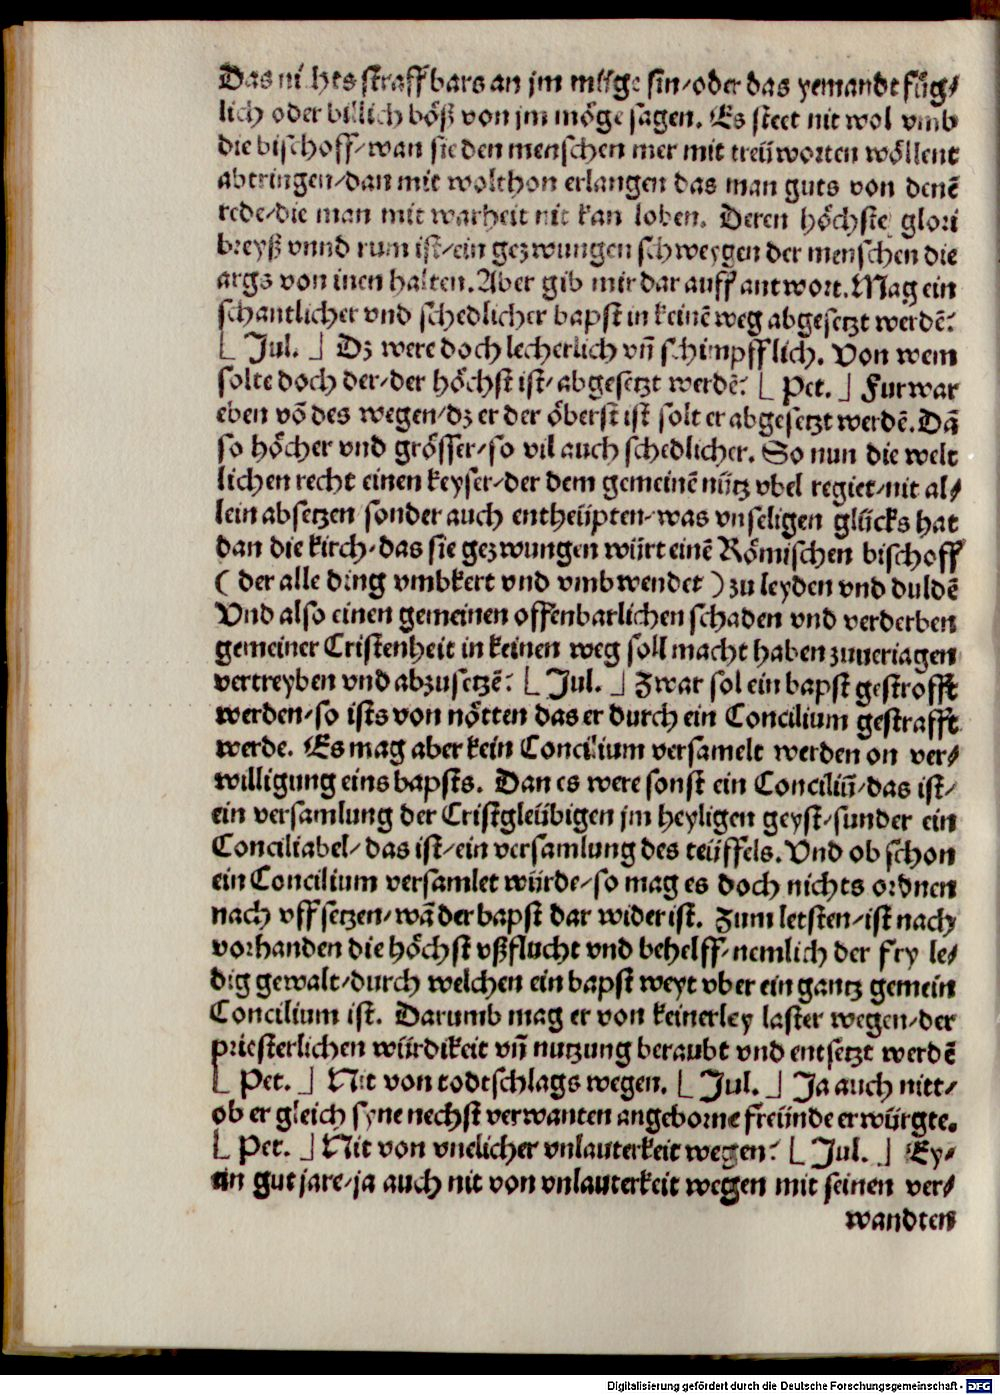 Das nichts straffbars an jm müge sin/oder das yemandt füg⸗
lich oder billich böß von jm möge sagen. Es steet nit wol vmb
die bischoff/wan sie den menschen mer mit treüworten wöllent
abtringen/dan mit wolthon erlangen das man guts von denē
rede/die man mit warheit nit kan loben. Deren höchste glori
breyß vnnd rum ist/ein gezwungen schweygen der menschen die
args von inen halten. Aber gib mir dar auff antwort. Mag ein
schantlicher vnd schedlicher bapst in keinē weg abgesetzt werdē?
[ Jul. ] Dz were doch lecherlich vñ schimpfflich. Von wem
solte doch der/der höchst ist/abgesetzt werdē? [ Pet. ] Furwar
eben vō des wegen/dz er der öberst ist solt er abgesetzt werdē. Dā
so höcher vnd grösser/so vil auch schedlicher. So nun die welt
lichen recht einen keyser/der dem gemeinē nütz vbel regiet/nit al⸗
lein absetzen sonder auch entheüpten/was vnseligen glücks hat
dan die kirch/das sie gezwungen würt einē Römischen bischoff
( der alle ding vmbkert vnd vmbwendet ) zu leyden vnd duldē
Vnd also einen gemeinen offenbarlichen schaden vnd verderben
gemeiner Cristenheit in keinen weg soll macht haben zuueriagen
vertreyben vnd abzusetzē? [ Jul. ] Zwar sol ein bapst gestrofft
werden/so ists von nötten das er durch ein Concilium gestrafft
werde. Es mag aber kein Concilium versamelt werden on ver⸗
willigung eins bapsts. Dan es were sonst ein Conciliū/das ist/
ein versamlung der Cristgleübigen jm heyligen geyst/sunder ein
Conciliabel/das ist/ein versamlung des teüffels. Vnd ob schon
ein Concilium versamlet würde/so mag es doch nichts ordnen
nach vffsetzen/wā der bapst dar wider ist. Zum letsten/ist nach
vorhanden die höchst vßflucht vnd behelff/nemlich der fry le⸗
dig gewalt/durch welchen ein bapst weyt vber ein gantz gemein
Concilium ist. Darumb mag er von keinerley laster wegen/der
priesterlichen würdikeit vñ nutzung beraubt vnd entsetzt werdē
[ Pet. ] Nit von todtschlags wegen. [ Jul. ] Ja auch nitt/
ob er gleich syne nechst verwanten angeborne freünde erwürgte.
[ Pet. ] Nit von vnelicher vnlauterkeit wegen? [ Jul. ] Ey⸗
en gut jare/ja auch nit von vnlauterkeit wegen mit seinen ver⸗
wandten
Digitalisierung gefördert durch die Deutsche Forschungsgemeinschaft - DFG